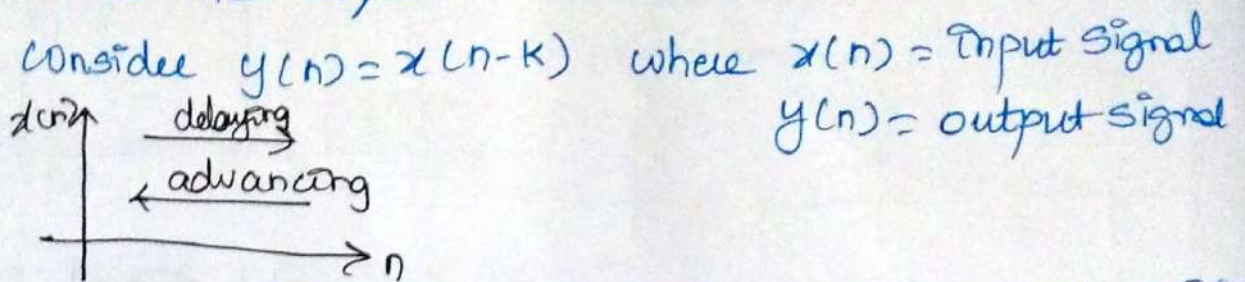 Consider y(n) = x(n-k) where x(n) = Input Signal
y(n) = output signal
x(n)
delaying
advancing
n